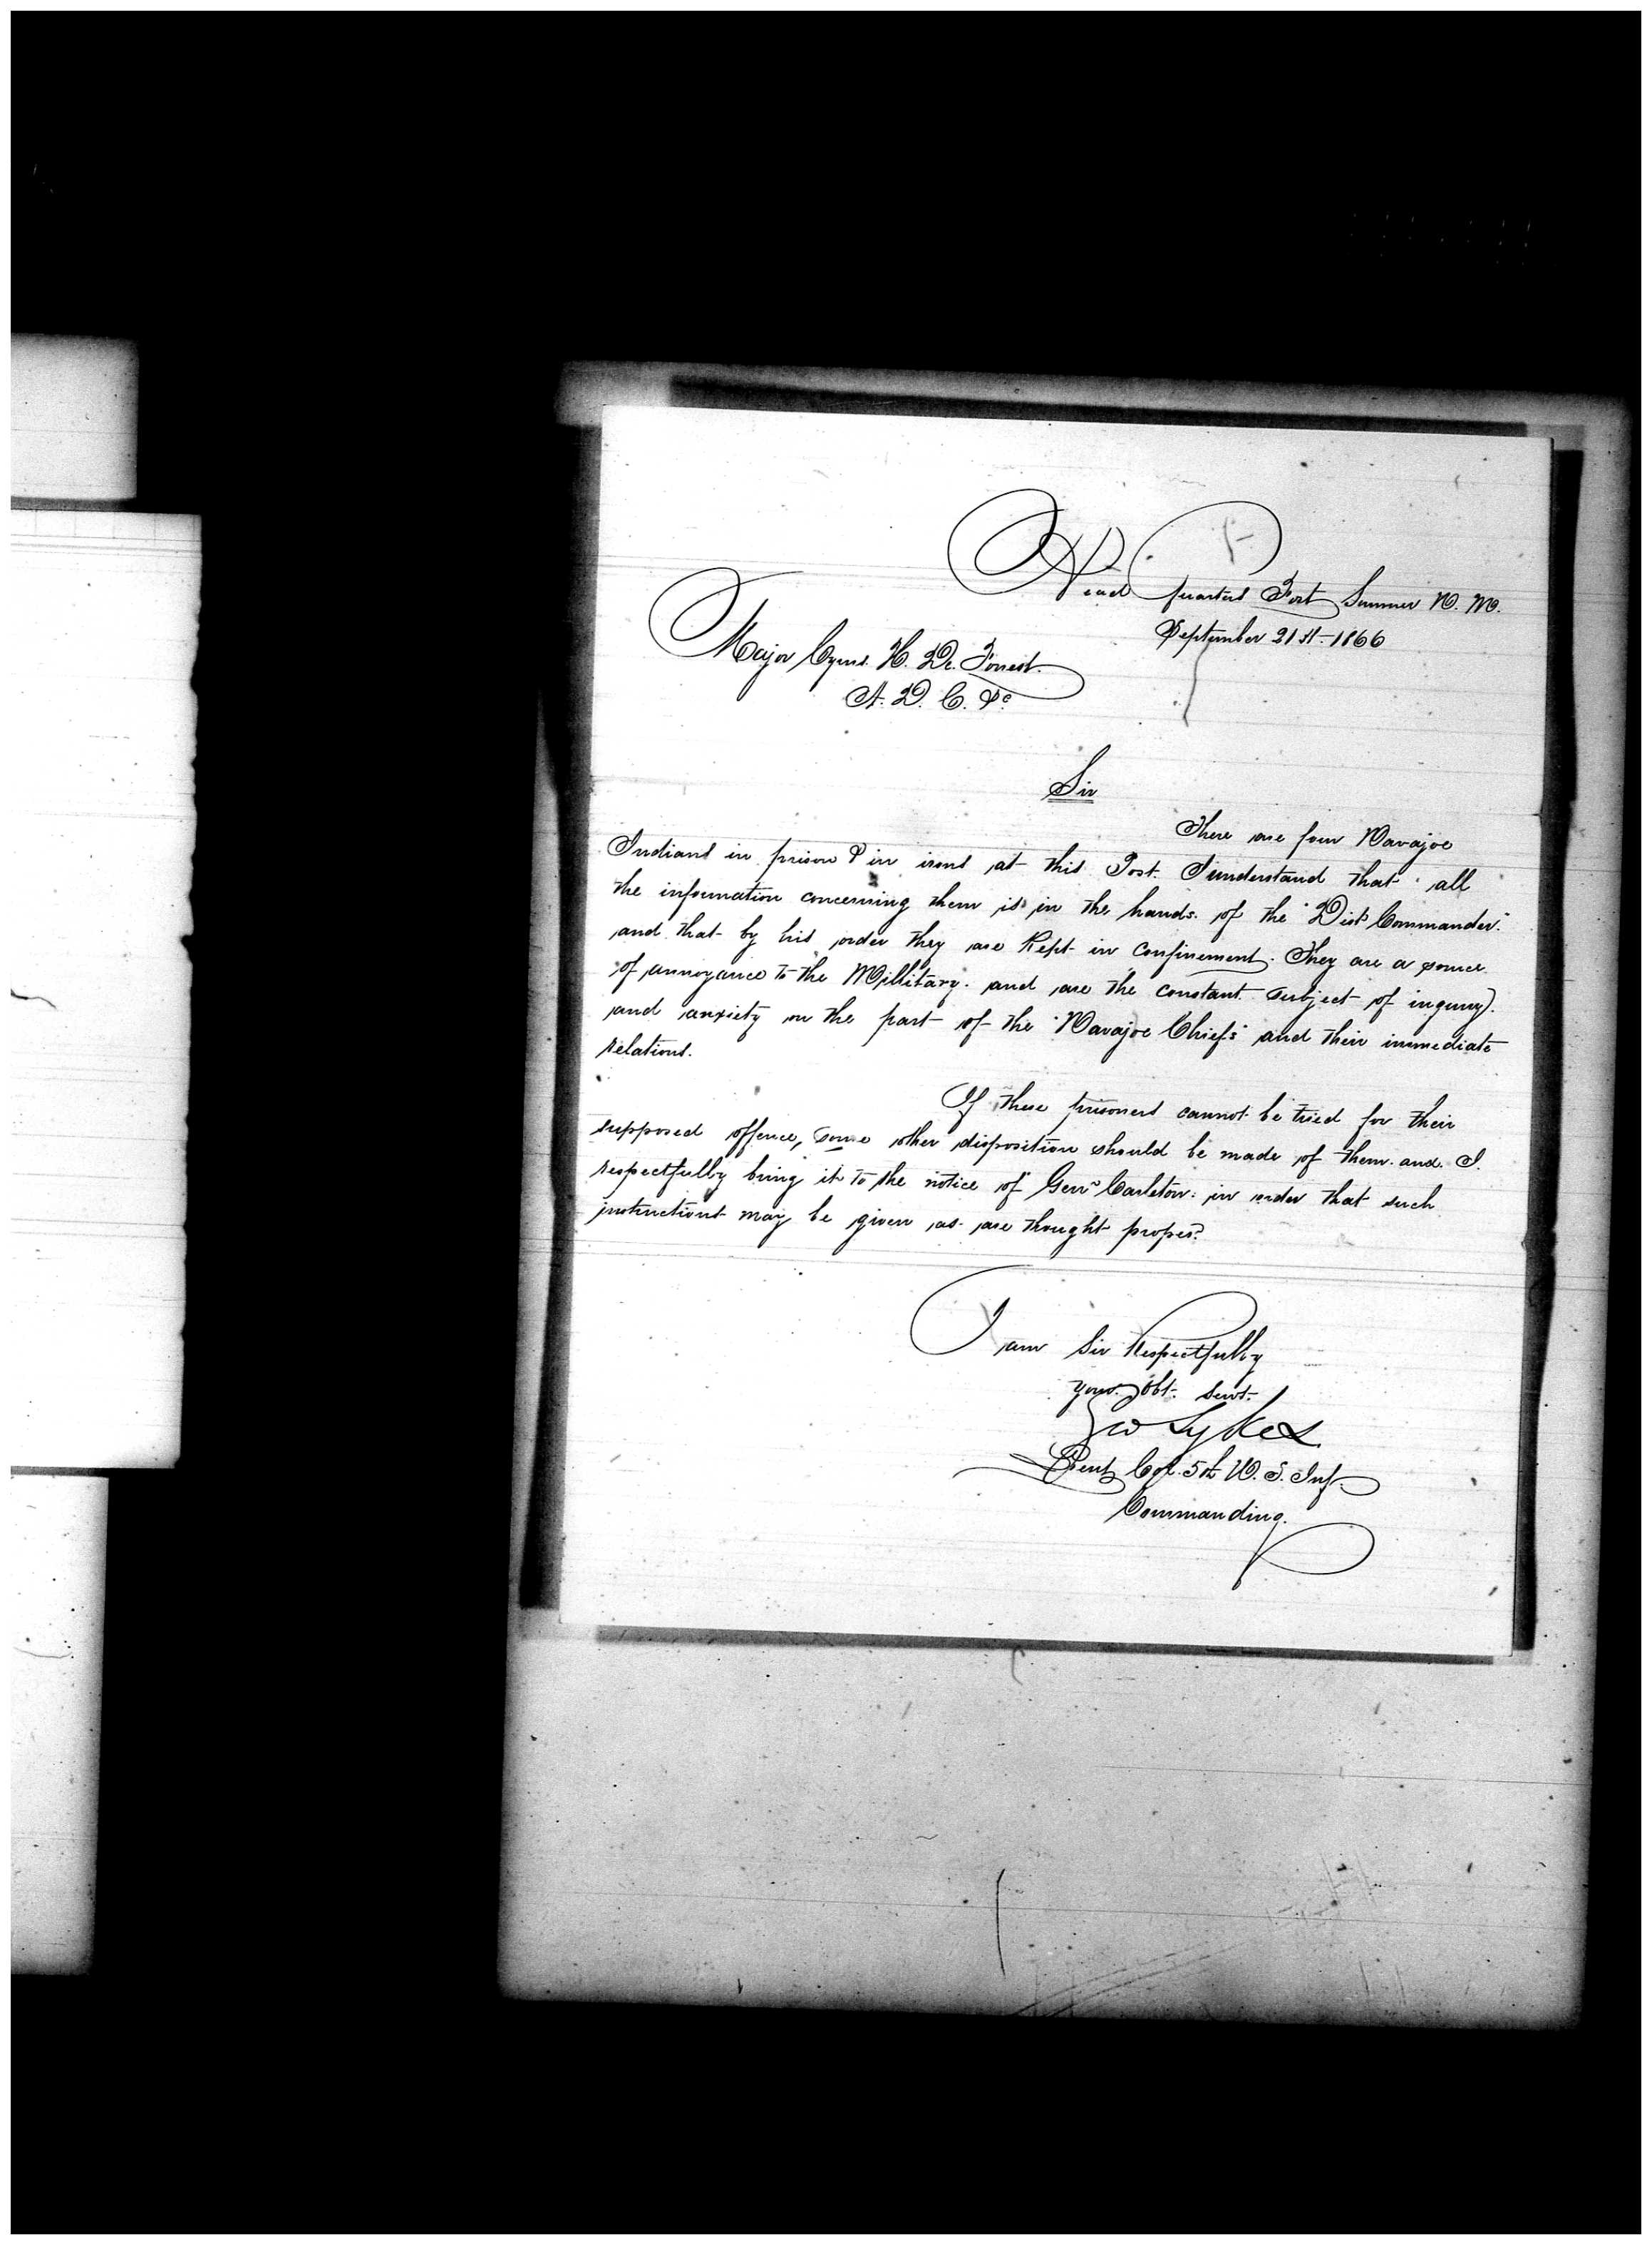 Head Quarters Fort Sumner N. M.
September 21st 1866
Major Cyrus. H. De. Forrest.
A. D. C. &c
Sir
There are four Navajoe
Indians in prison & in irons at this Post. I understand that all
the information concerning them is in the hands of the "Dist Commander."
and that by his order they are Kept in confinement. They are a source
of annoyance to the Millitary. and are the constant subject of inquiry
and anxiety on the part of the "Navajoe Chiefs" and their immediate
relations.
If these prisoners cannot be tried for their
supposed offence, some other disposition should be made of them. and I.
respectfully bring it to the notice of Genl Carleton. in order that such
instructions may be given as are thought proper.
I am Sir Respectfully
your Obt. Servt.
Geo Sykes
Lieut Col. 5th U. S. Inf.
Commanding.